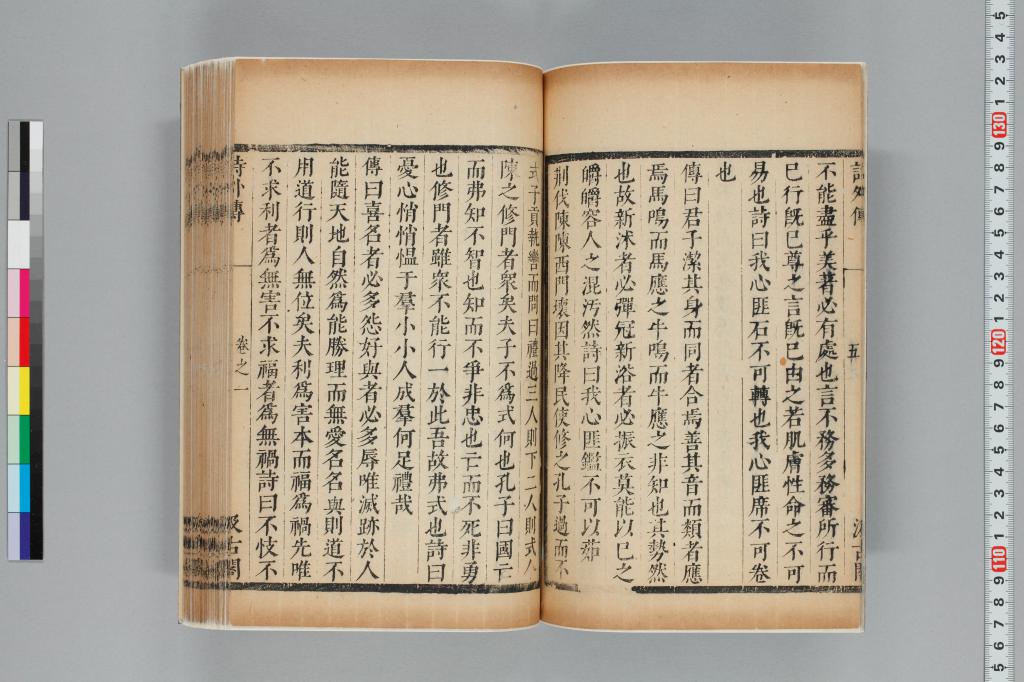 詩外傳
五
汲古閣
不能盡乎美著必有處也言不務多務審所行而
已行旣已尊之言旣已由之若肌膚性命之不可
易也詩曰我心匪石不可轉也我心匪席不可卷
也
傳曰君子潔其身而同者合焉善其音而類者應
焉馬鳴而馬應之牛鳴而牛應之非知也其勢然
也故新沐者必彈冠新浴者必振衣莫能以己之
皭皭容人之混污然詩曰我心匪鑑不可以茹
荆伐陳陳西門壞因其降民使修之孔子過而不
式子貢執轡而問曰禮過三人則下二人則式今
陳之修門者衆矣夫子不爲式何也孔子曰國亡
而弗知不智也知而不爭非忠也亡而不死非勇
也修門者雖衆不能行一於此吾故弗式也詩曰
憂心悄悄慍于羣小小人成羣何足禮哉
傳曰喜名者必多怨好與者必多辱唯滅跡於人
能隨天地自然爲能勝理而無愛名名興則道不
用道行則人無位矣夫利爲害本而福爲禍先唯
不求利者爲無害不求福者爲無禍詩曰不忮不
詩外傳
卷之一
汲古閣
5
4
3
2
1
130
9
8
7
6
5
4
3
2
1
120
9
8
7
6
5
4
3
2
1
110
9
8
7
6
5